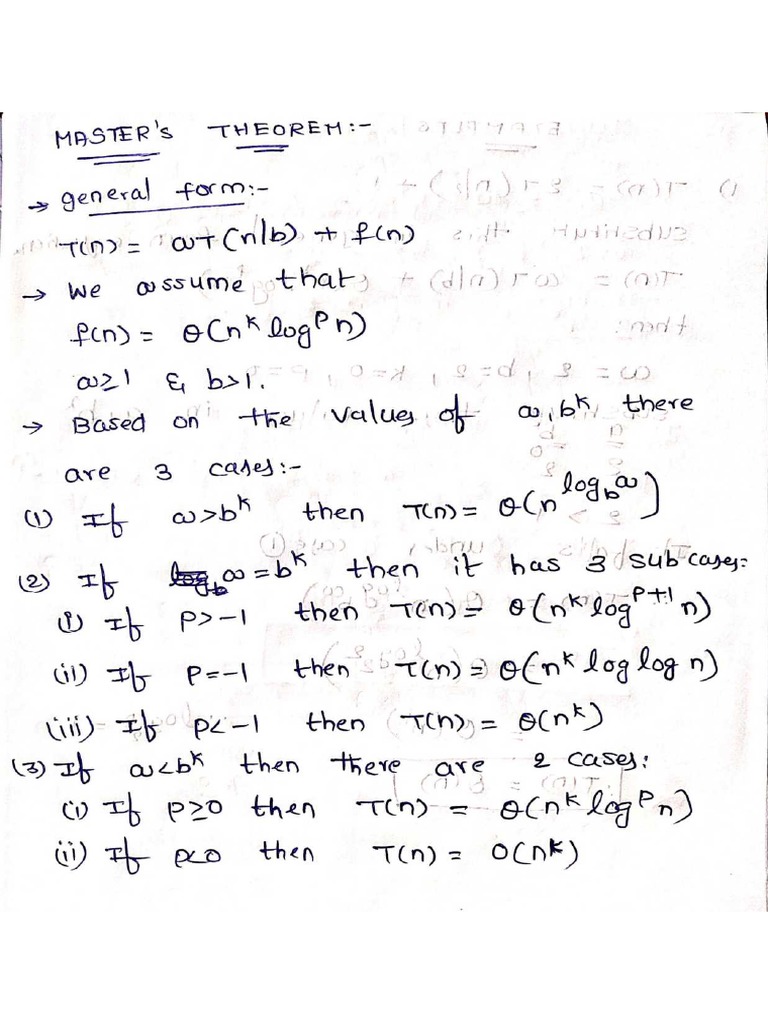 MASTER's THEOREM:-
→ general form:-
T(n) = aT(n/b) + f(n)
→ We assume that
f(n) = θ(n^k log^p n)
a≥1 & b>1.
→ Based on the values of a, b^k there
are 3 cases:-
(1) If a>b^k then T(n) = θ(n^log_b a)
(2) If a=b^k then it has 3 subcases:
(i) If p>-1 then T(n) = θ(n^k log^p+1 n)
(ii) If p=-1 then T(n) = θ(n^k log log n)
(iii) If p<-1 then T(n) = θ(n^k)
(3) If a<b^k then there are 2 cases:
(i) If p≥0 then T(n) = θ(n^k log^p n)
(ii) If p<0 then T(n) = O(n^k)